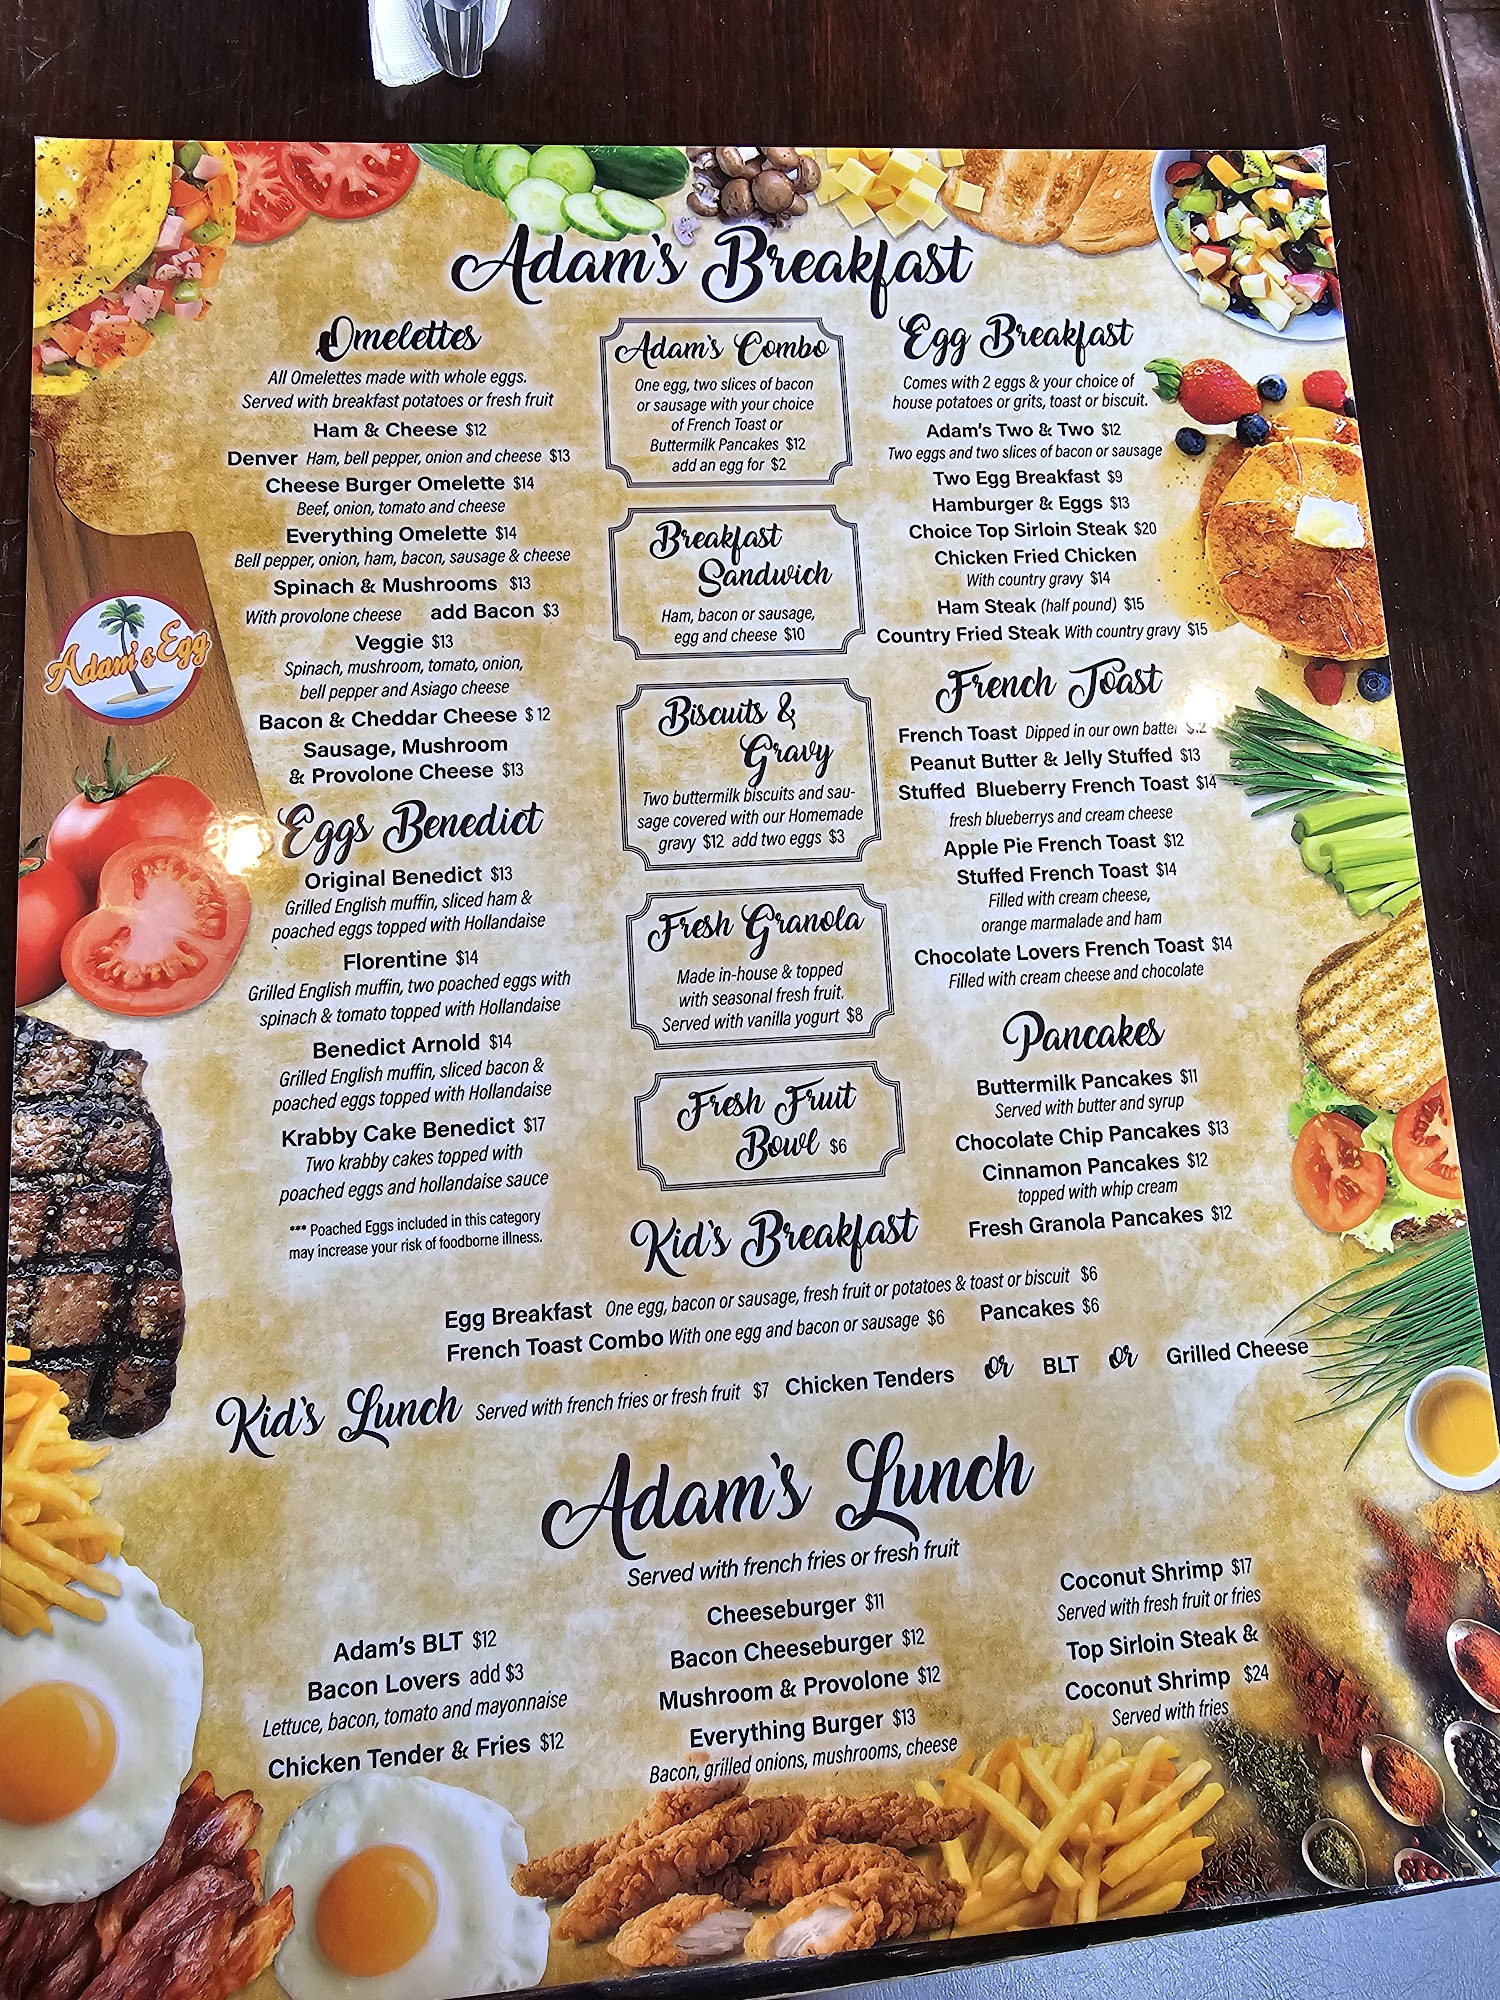 Adam's Breakfast
Omelettes
All Omelettes made with whole eggs.
Served with breakfast potatoes or fresh fruit
Ham & Cheese $12
Denver Ham, bell pepper, onion and cheese $13
Cheese Burger Omelette $14
Beef, onion, tomato and cheese
Everything Omelette $14
Bell pepper, onion, ham, bacon, sausage & cheese
Spinach & Mushrooms $13
With provolone cheese add Bacon $3
Veggie $13
Spinach, mushroom, tomato, onion,
bell pepper and Asiago cheese
Bacon & Cheddar Cheese $12
Sausage, Mushroom
& Provolone Cheese $13
Adam's Egg
Eggs Benedict
Original Benedict $13
Grilled English muffin, sliced ham &
poached eggs topped with Hollandaise
Florentine $14
Grilled English muffin, two poached eggs with
spinach & tomato topped with Hollandaise
Benedict Arnold $14
Grilled English muffin, sliced bacon &
poached eggs topped with Hollandaise
Krabby Cake Benedict $17
Two krabby cakes topped with
poached eggs and hollandaise sauce
*** Poached Eggs included in this category
may increase your risk of foodborne illness.
Adam's Combo
One egg, two slices of bacon
or sausage with your choice
of French Toast or
Buttermilk Pancakes $12
add an egg for $2
Breakfast
Sandwich
Ham, bacon or sausage,
egg and cheese $10
Biscuits &
Gravy
Two buttermilk biscuits and sau-
sage covered with our Homemade
gravy $12 add two eggs $3
Fresh Granola
Made in-house & topped
with seasonal fresh fruit.
Served with vanilla yogurt $8
Fresh Fruit
Bowl $6
Egg Breakfast
Comes with 2 eggs & your choice of
house potatoes or grits, toast or biscuit.
Adam's Two & Two $12
Two eggs and two slices of bacon or sausage
Two Egg Breakfast $9
Hamburger & Eggs $13
Choice Top Sirloin Steak $20
Chicken Fried Chicken
With country gravy $14
Ham Steak (half pound) $15
Country Fried Steak With country gravy $15
French Toast
French Toast Dipped in our own batter $12
Peanut Butter & Jelly Stuffed $13
Stuffed Blueberry French Toast $14
fresh blueberrys and cream cheese
Apple Pie French Toast $12
Stuffed French Toast $14
Filled with cream cheese,
orange marmalade and ham
Chocolate Lovers French Toast $14
Filled with cream cheese and chocolate
Pancakes
Buttermilk Pancakes $11
Served with butter and syrup
Chocolate Chip Pancakes $13
Cinnamon Pancakes $12
topped with whip cream
Fresh Granola Pancakes $12
Kid's Breakfast
Egg Breakfast One egg, bacon or sausage, fresh fruit or potatoes & toast or biscuit $6
French Toast Combo With one egg and bacon or sausage $6 Pancakes $6
Kid's Lunch Served with french fries or fresh fruit $7 Chicken Tenders or BLT or Grilled Cheese
Adam's Lunch
Served with french fries or fresh fruit
Adam's BLT $12
Bacon Lovers add $3
Lettuce, bacon, tomato and mayonnaise
Chicken Tender & Fries $12
Cheeseburger $11
Bacon Cheeseburger $12
Mushroom & Provolone $12
Everything Burger $13
Bacon, grilled onions, mushrooms, cheese
Coconut Shrimp $17
Served with fresh fruit or fries
Top Sirloin Steak &
Coconut Shrimp $24
Served with fries